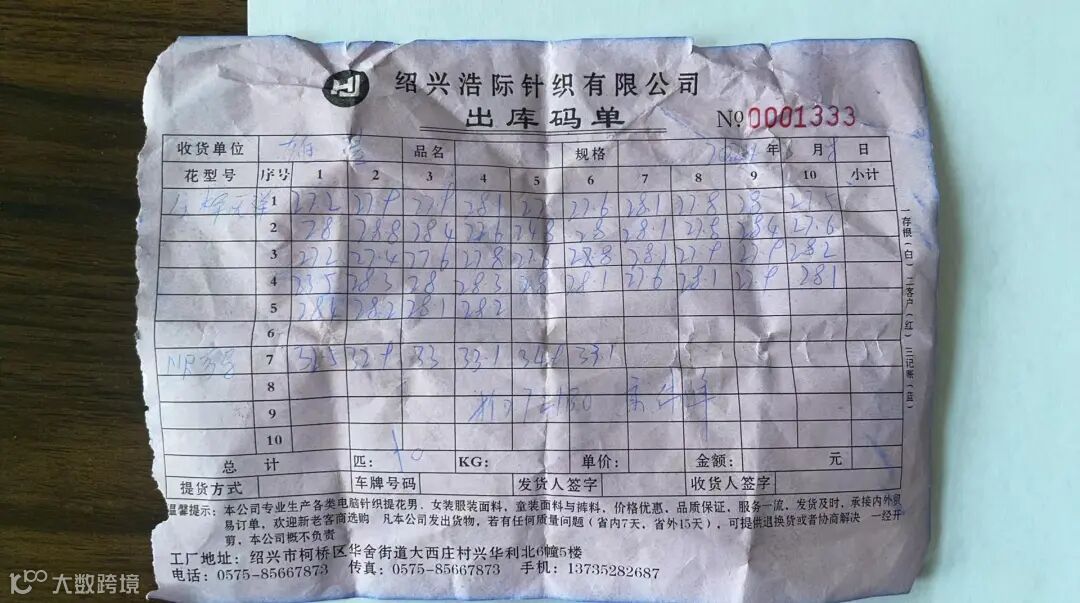 绍兴浩际针织有限公司
出库码单
№0001333
收货单位 品名 规格 年 月 日
花型号 序号 1 2 3 4 5 6 7 8 9 10 小计
1 27.2 27.9 27.9 28.1 27.6 28.1 27.8 27.5
2 28 28.8 28.4 27.6 28 28.1 27.8 28.4 27.6
3 27.2 27.4 27.6 27.8 28.8 28.1 27.9 27.9 28.2
4 28.3 28 28.3 28.1 27.6 28.1 27.9 28.1
5 28.2 28.1 28.2
6
NR 7 32.5 32.9 33 33.1 33.1
8
9
10
总计 匹: KG: 单价: 金额: 元
提货方式 车牌号码 发货人签字 收货人签字
一存根(白) 二客户(红) 三记账(蓝)
温馨提示:本公司专业生产各类电脑针织提花男、女装服装面料,童装面料与裤料,价格优惠,品质保证,服务一流,发货及时,承接内外贸
易订单,欢迎新老客商选购 凡本公司发出货物,若有任何质量问题(省内7天,省外15天),可提供退换货或者协商解决 一经开
剪,本公司概不负责
工厂地址:绍兴市柯桥区华舍街道大西庄村兴华利北6幢5楼
电话:0575-85667873 传真:0575-85667873 手机:13735282687
大数跨境